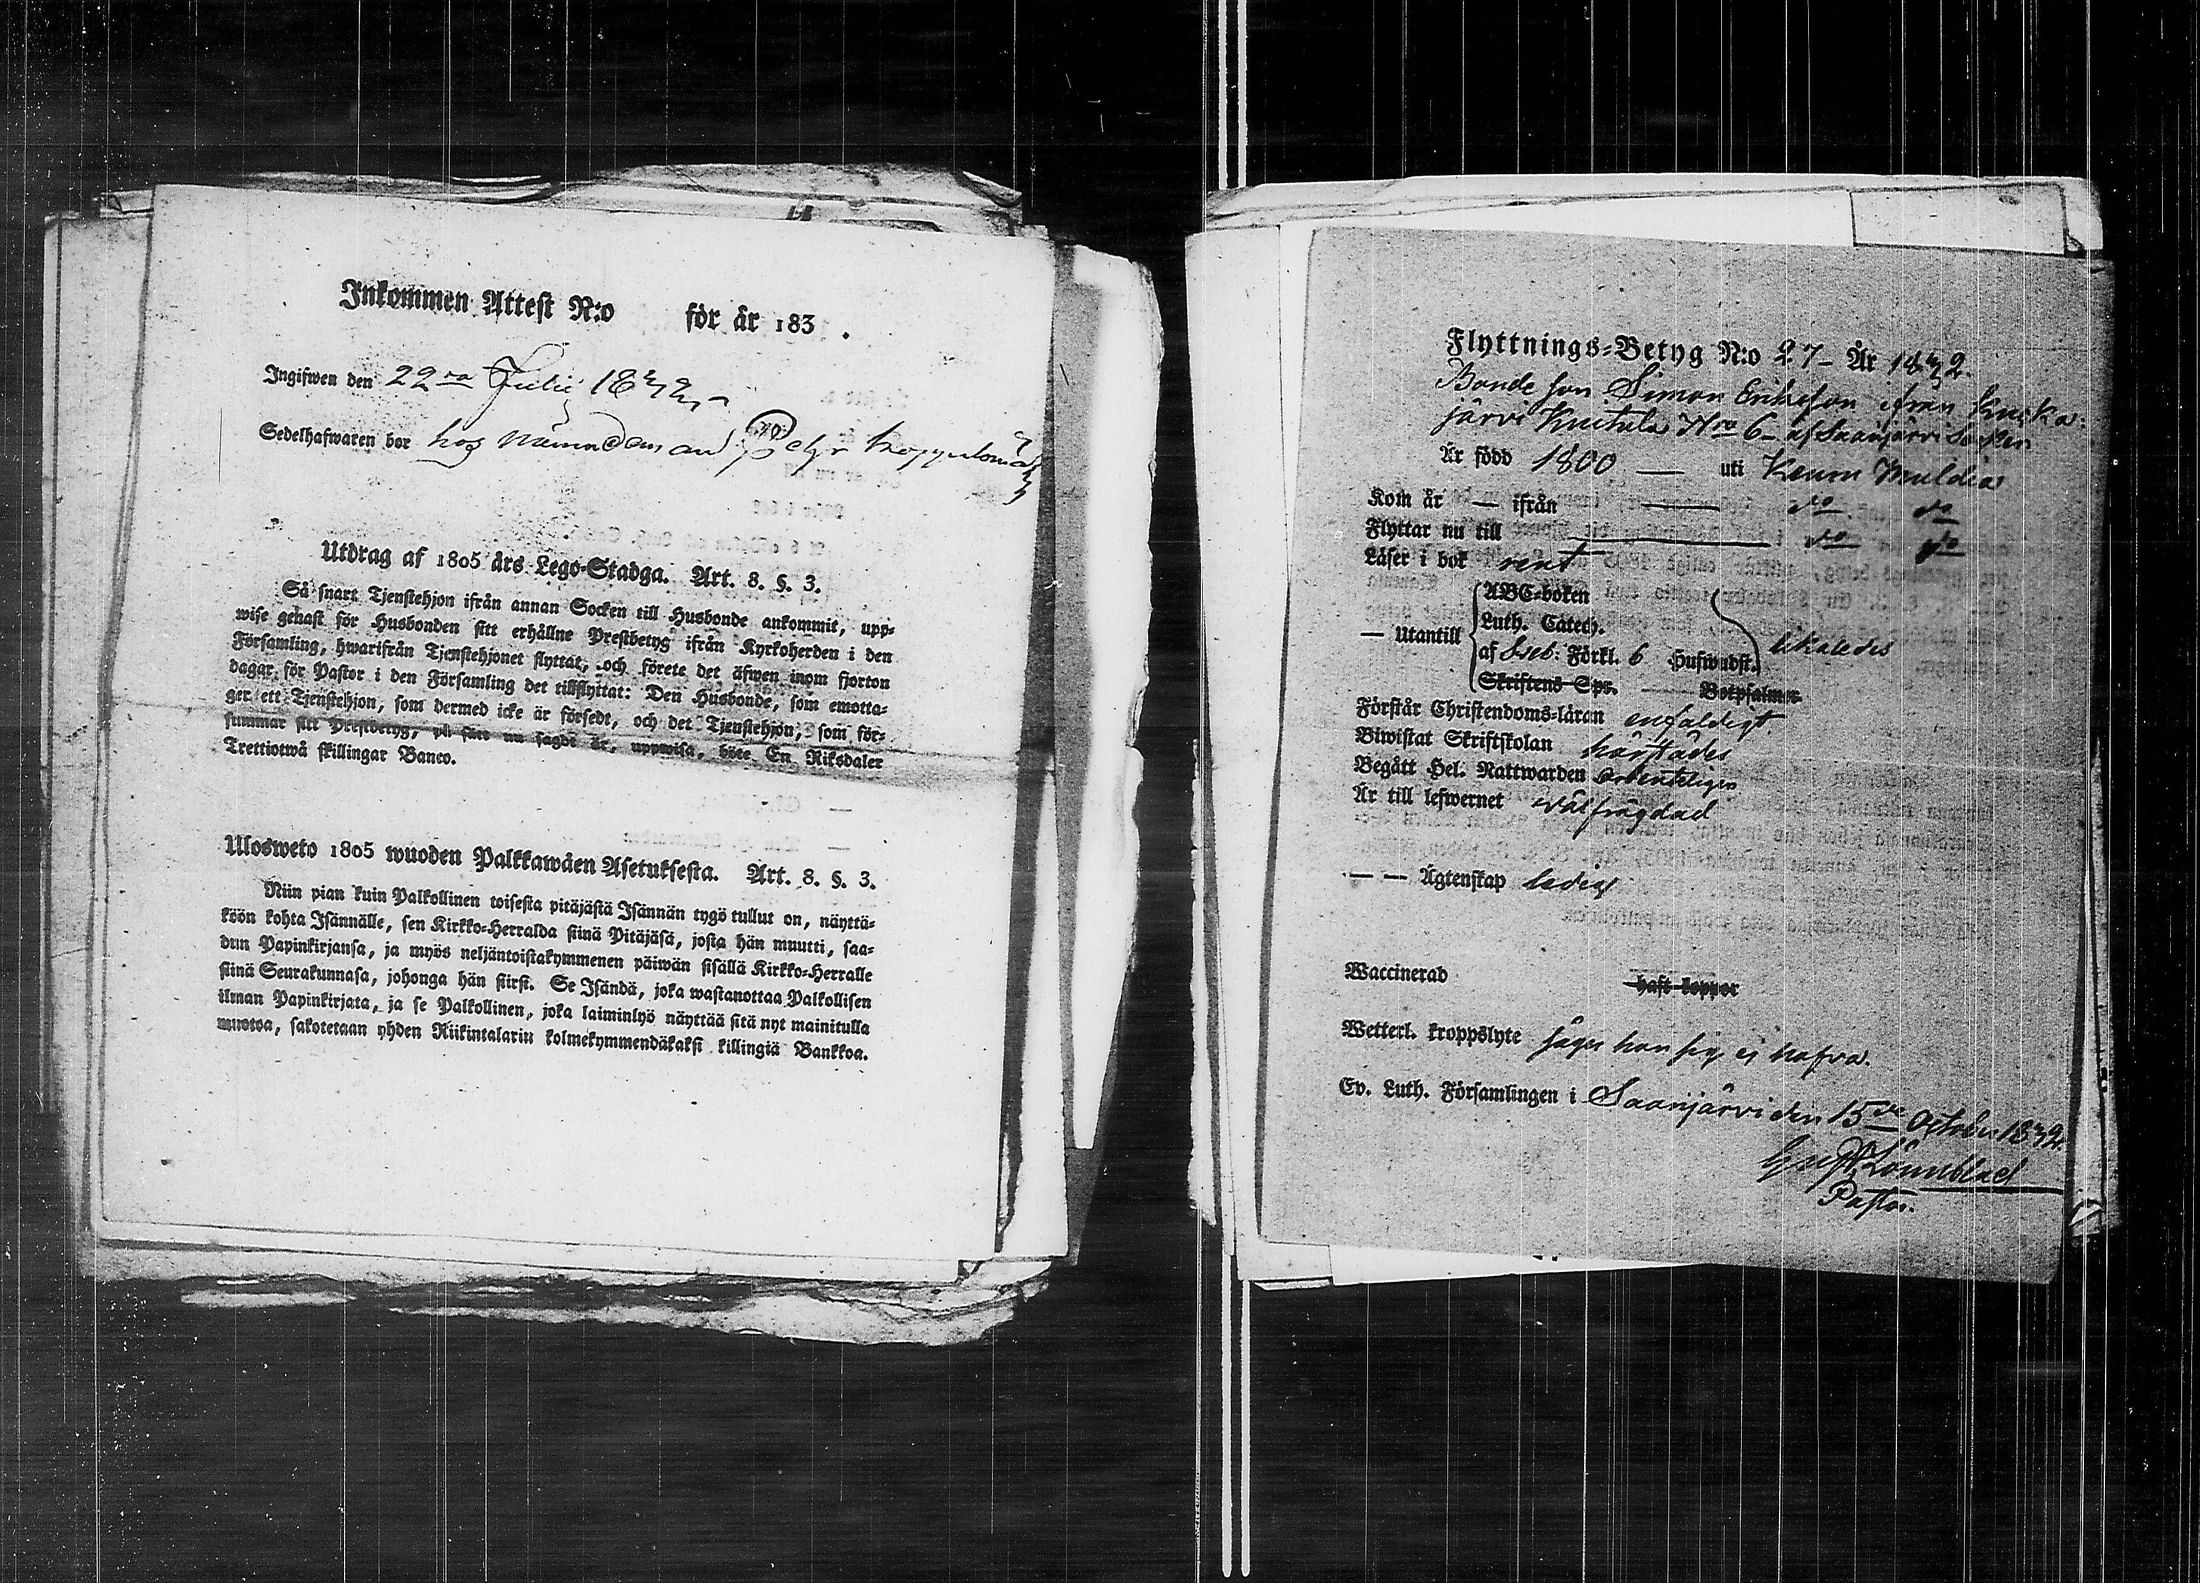 Inkommen Attest N:o för år 183 .
Ingifwen den 22ra Julii 1832
Sedelhafwaren bor hos nämndeman Pehr
Utdrag af 1805 års Lego-Stadga. Art. 8. §. 3.
Så snart Tjenstehjon ifrån annan Socken till Husbonde ankommit, upp-
wise genast för Husbonden sitt erhållne Prestbetyg ifrån Kyrkoherden i den
Församling, hwarifrån Tjenstehjonet flyttat, och förete det äfwen inom fjorton
dagar för Pastor i den Församling det tillflyttat: Den Husbonde, som emotta-
ger ett Tjenstehjon, som dermed icke är försedt, och det Tjenstehjon, som för-
summar sitt Prestbetyg, på sätt nu sagdt är, uppwisa, böte En Riksdaler
Trettiotwå skillingar Banco.
Ulosweto 1805 wuoden Palkkawäen Asetuksesta. Art. 8. §. 3.
Niin pian kuin Palkollinen toisesta pitäjästä Isännän tygö tullut on, näyttä-
köön kohta Isännälle, sen Kirkko-Herralda siinä Pitäjäsä, josta hän muutti, saa-
dun Papinkirjansa, ja myös neljäntoistakymmenen päiwän sisällä Kirkko-Herralle
siinä Seurakunnasa, johonga hän siirsi. Se Isändä, joka wastanottaa Palkollisen
ilman Papinkirjata, ja se Palkollinen, joka laiminlyö näyttää sitä nyt mainitulla
muotoa, sakotetaan yhden Riikintalarin kolmekymmendäkaksi killingiä Bankkoa.
Flyttnings-Betyg N:o 27 – År 1832.
Bonde son Simon Eriksson ifrån
järvi Knutula Nro 6 – af Saarijärvi Socken
Är född 1800 — uti Keuru
Kom år — ifrån — do do
Flyttar nu till — i do do
Läser i bok rent
ABC-boken
Luth. Catech.
— Utantill af Sveb: Förkl. 6 Hufwudst. likaledes
Skriftens Spr. — Botpsalmer
Förstår Christendoms-läran enfaldigt.
Biwistat Skriftskolan härstädes
Begått Hel. Nattwarden ordenteligen
Är till lefwernet välfrägdad
— — Ägtenskap ledig
Waccinerad haft koppor
Wetterl. kroppslyte säger han sig ej hafva.
Ev. Luth. Församlingen i Saarijärvi den 15de October 1832
Gust. Lönnblad
Pastor.